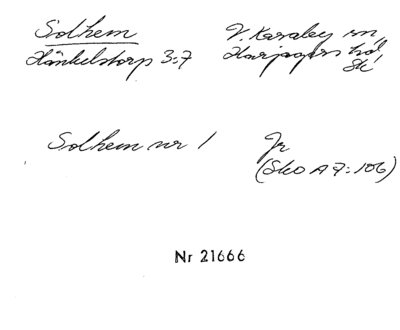 Solhem
Hänkelstorp 3:7
V. Karaby sn,
Harjagers hd,
Sk
Solhem nr 1
Jr
(Sko A 7:106)
Nr 21666